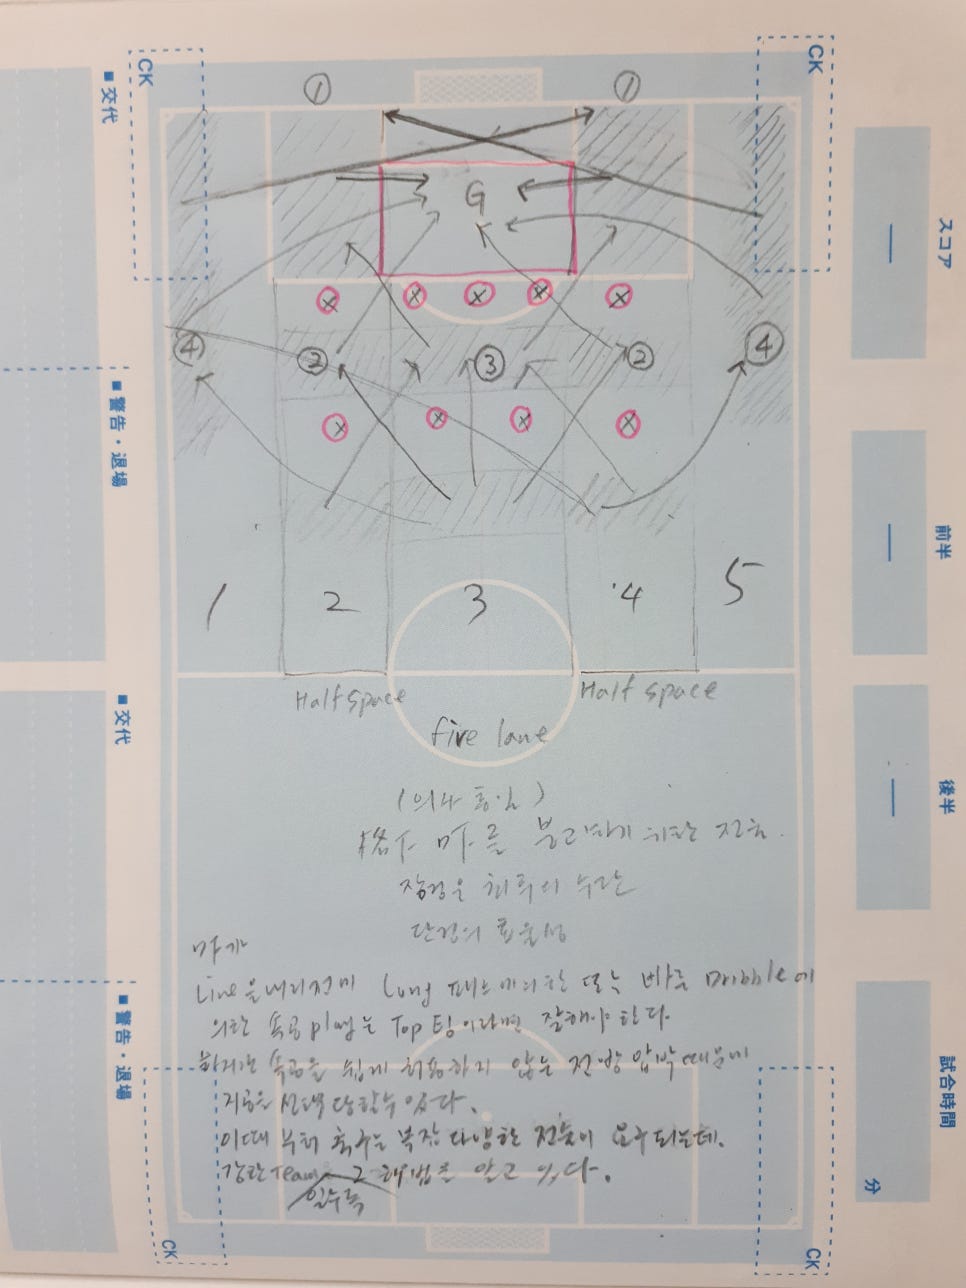 CK
CK
■交代
① ①
スコア
G
④ ② ③ ② ④
■警告・退場
前半
1 2 3 4 5
Half space Half space
five lane
■交代
後半
를 위한
장점은
단점의 효율성
Line을 내리 전에 Long 패스에 의한 또는 빠른 Dribble에
의한 속공 play는 Top 팀이라면 잘해야 한다.
하지만 속공을 쉽게 허용하지 않는 전방 압박 때문에
지공을 선택 당할 수 있다.
이때 부터 축구는 복잡 다양한 전술이 요구되는데,
강한 Team 그 해법을 알고 있다.
일수록
■警告・退場
試合時間
分
CK
CK